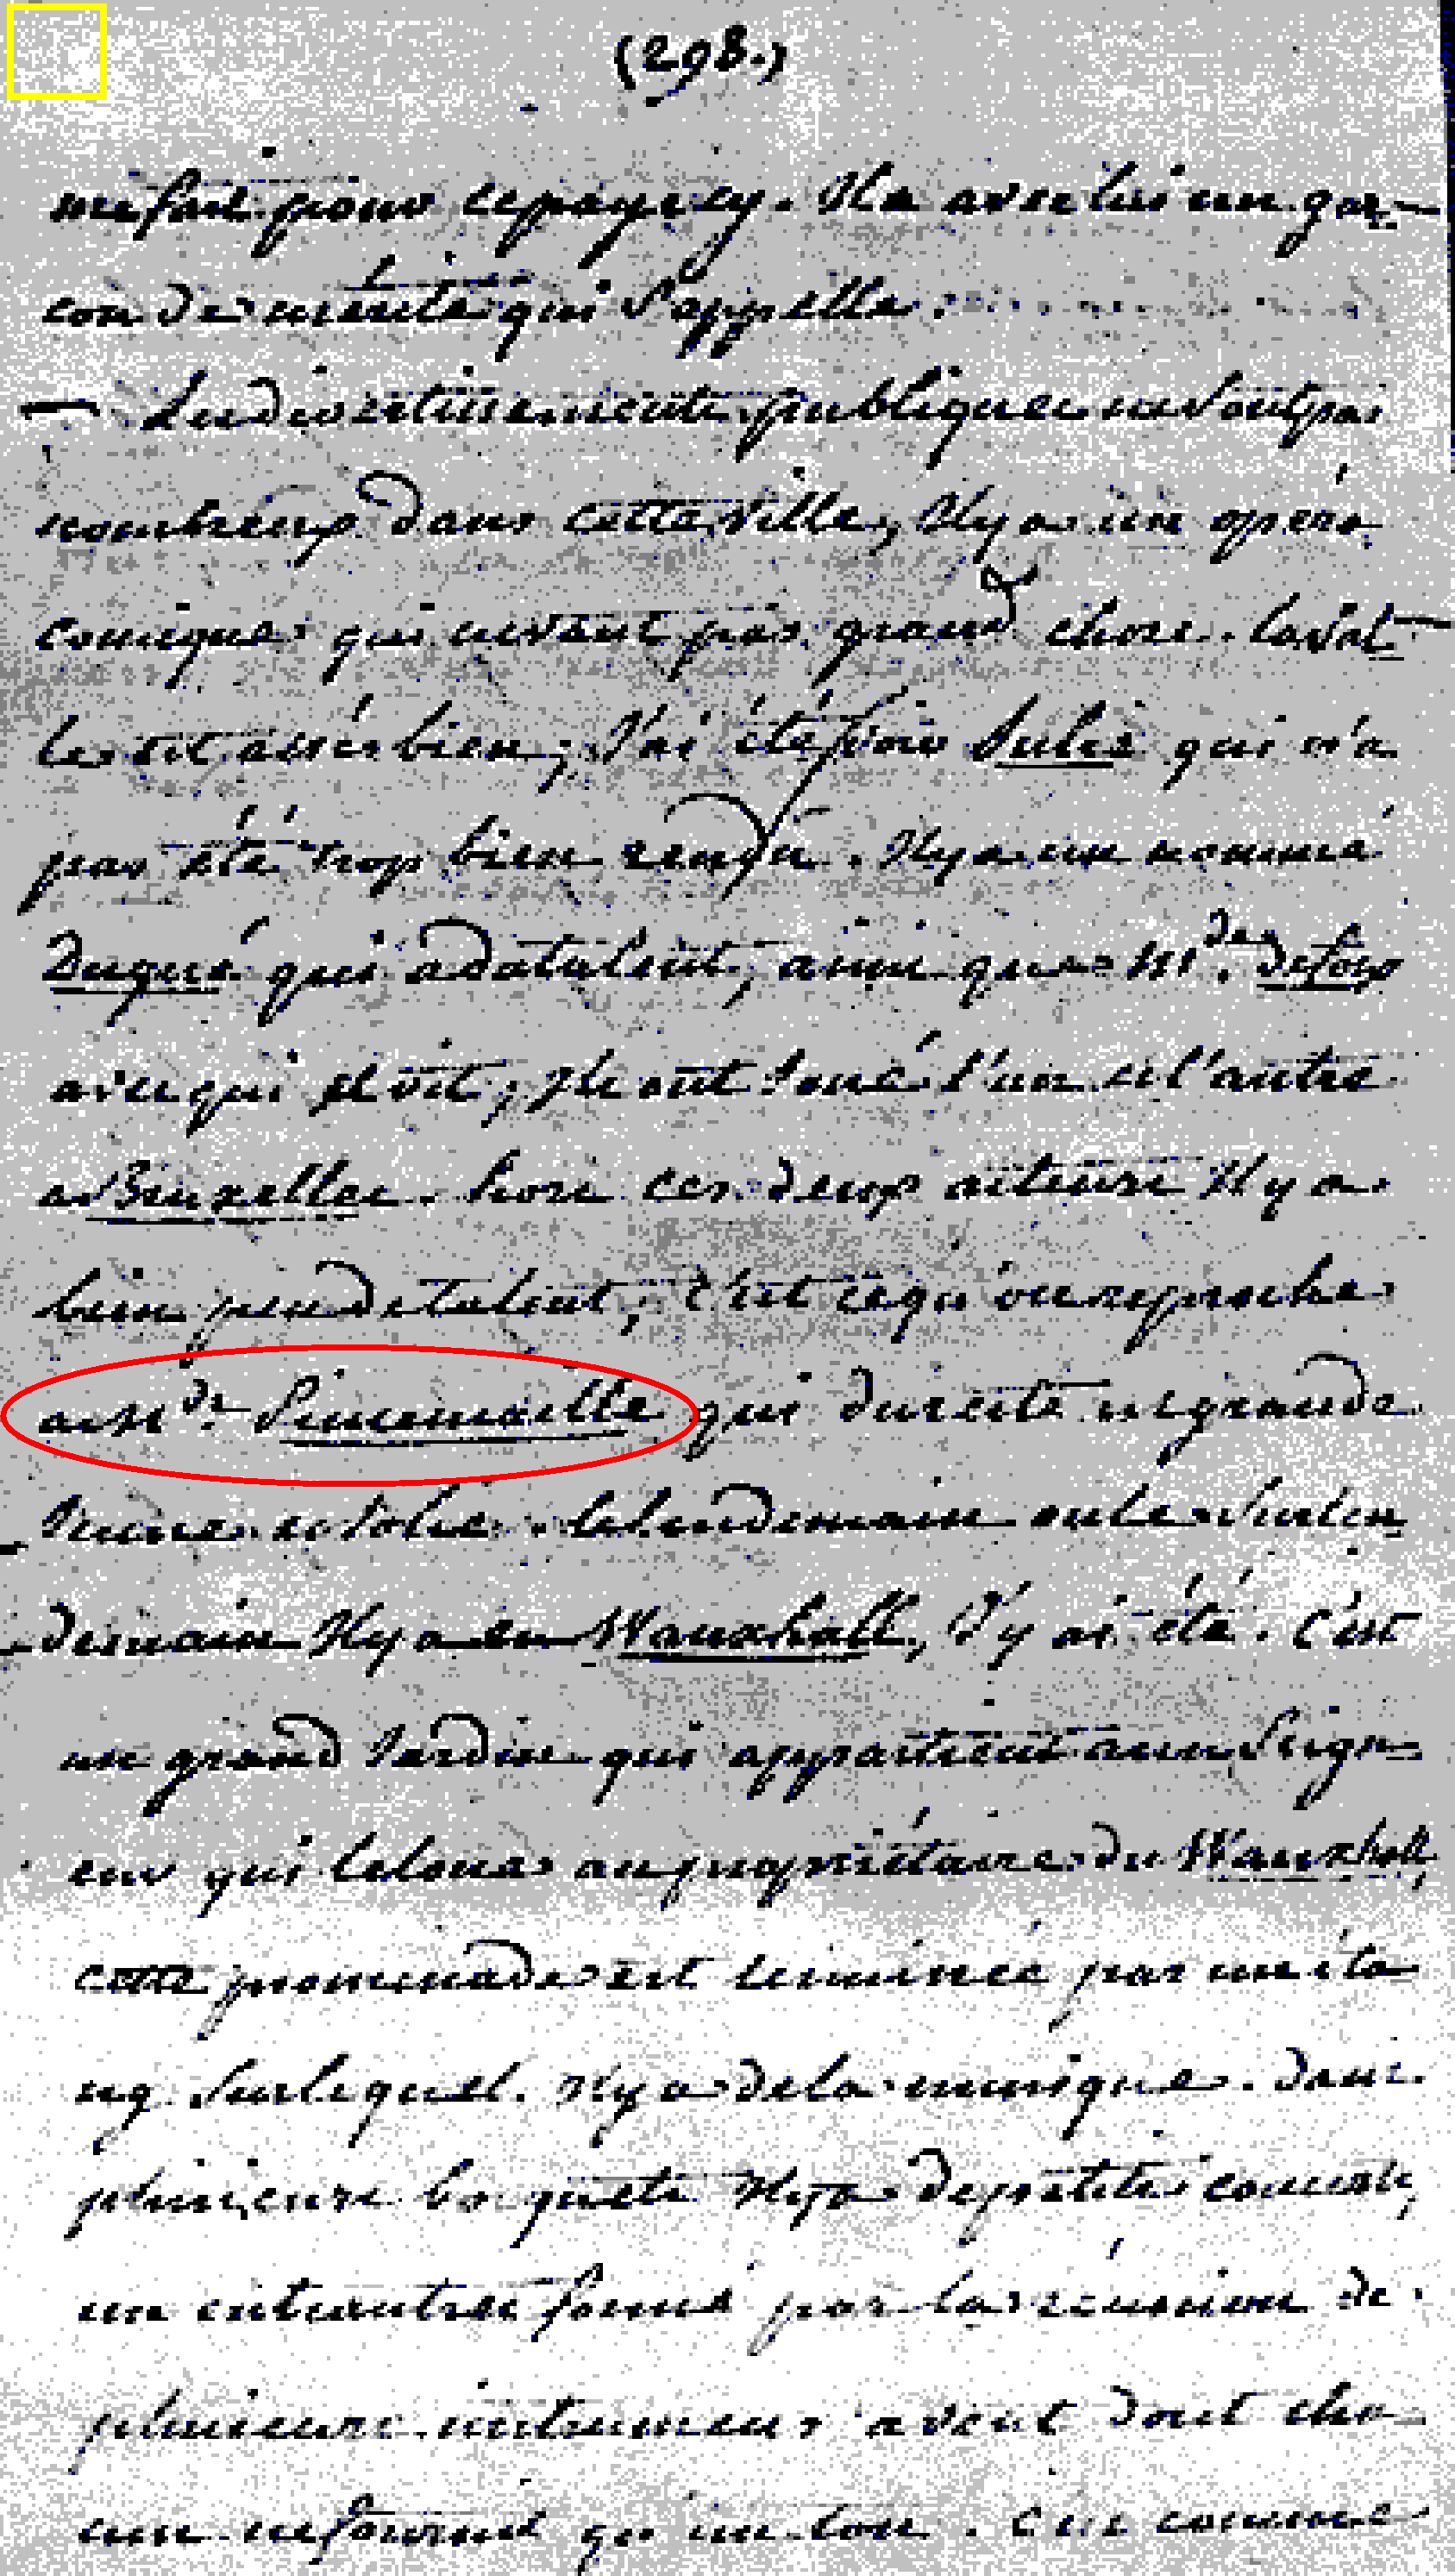 (298.)
me fait pour le pays icy. Il a avec lui un gar-
con de merite qui s'appelle.
— Les divertissements publiques ne sont pas
nombreux dans cette ville, Il y a un opera
comique qui ne vaut pas grand chose. la sal-
le est assés bien; J'ai été voir Julie qui n'a
pas été trop bien rendu. Il y a un nommé
Dugué qui a du talent, ainsi que M.de
avec qui il vit, Ils ont joué l'un et l'autre
a Bruxelles. hors ces deux acteurs Il y a
bien peu de talent, c'est ce qu'on reproche
a M.dr Pincemaille qui du reste est grande
Jeune et Jolie. le lendemain ou le surlen
demain Il y a eu Wauxhall, J'y ai été. C'est
un grand Jardin qui appartient a un Seign
eur qui le loue au propriétaire du Wauxhall,
cette promenade est terminée par un éta
ng sur lequel Il y a de la musique. dans
plusieurs bosquets Il y a de petits concerts,
un entrautres formé par la réunion de
plusieurs instrumens a vent dont cha-
cun ne fournit qu'un ton. Ceci comme